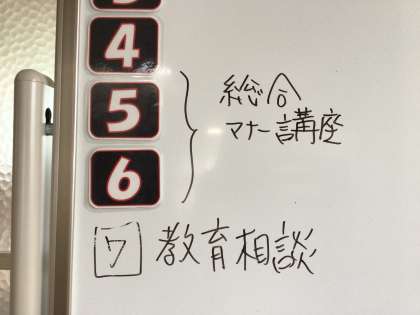 4
5
6
総合
マナー講座
7 教育相談